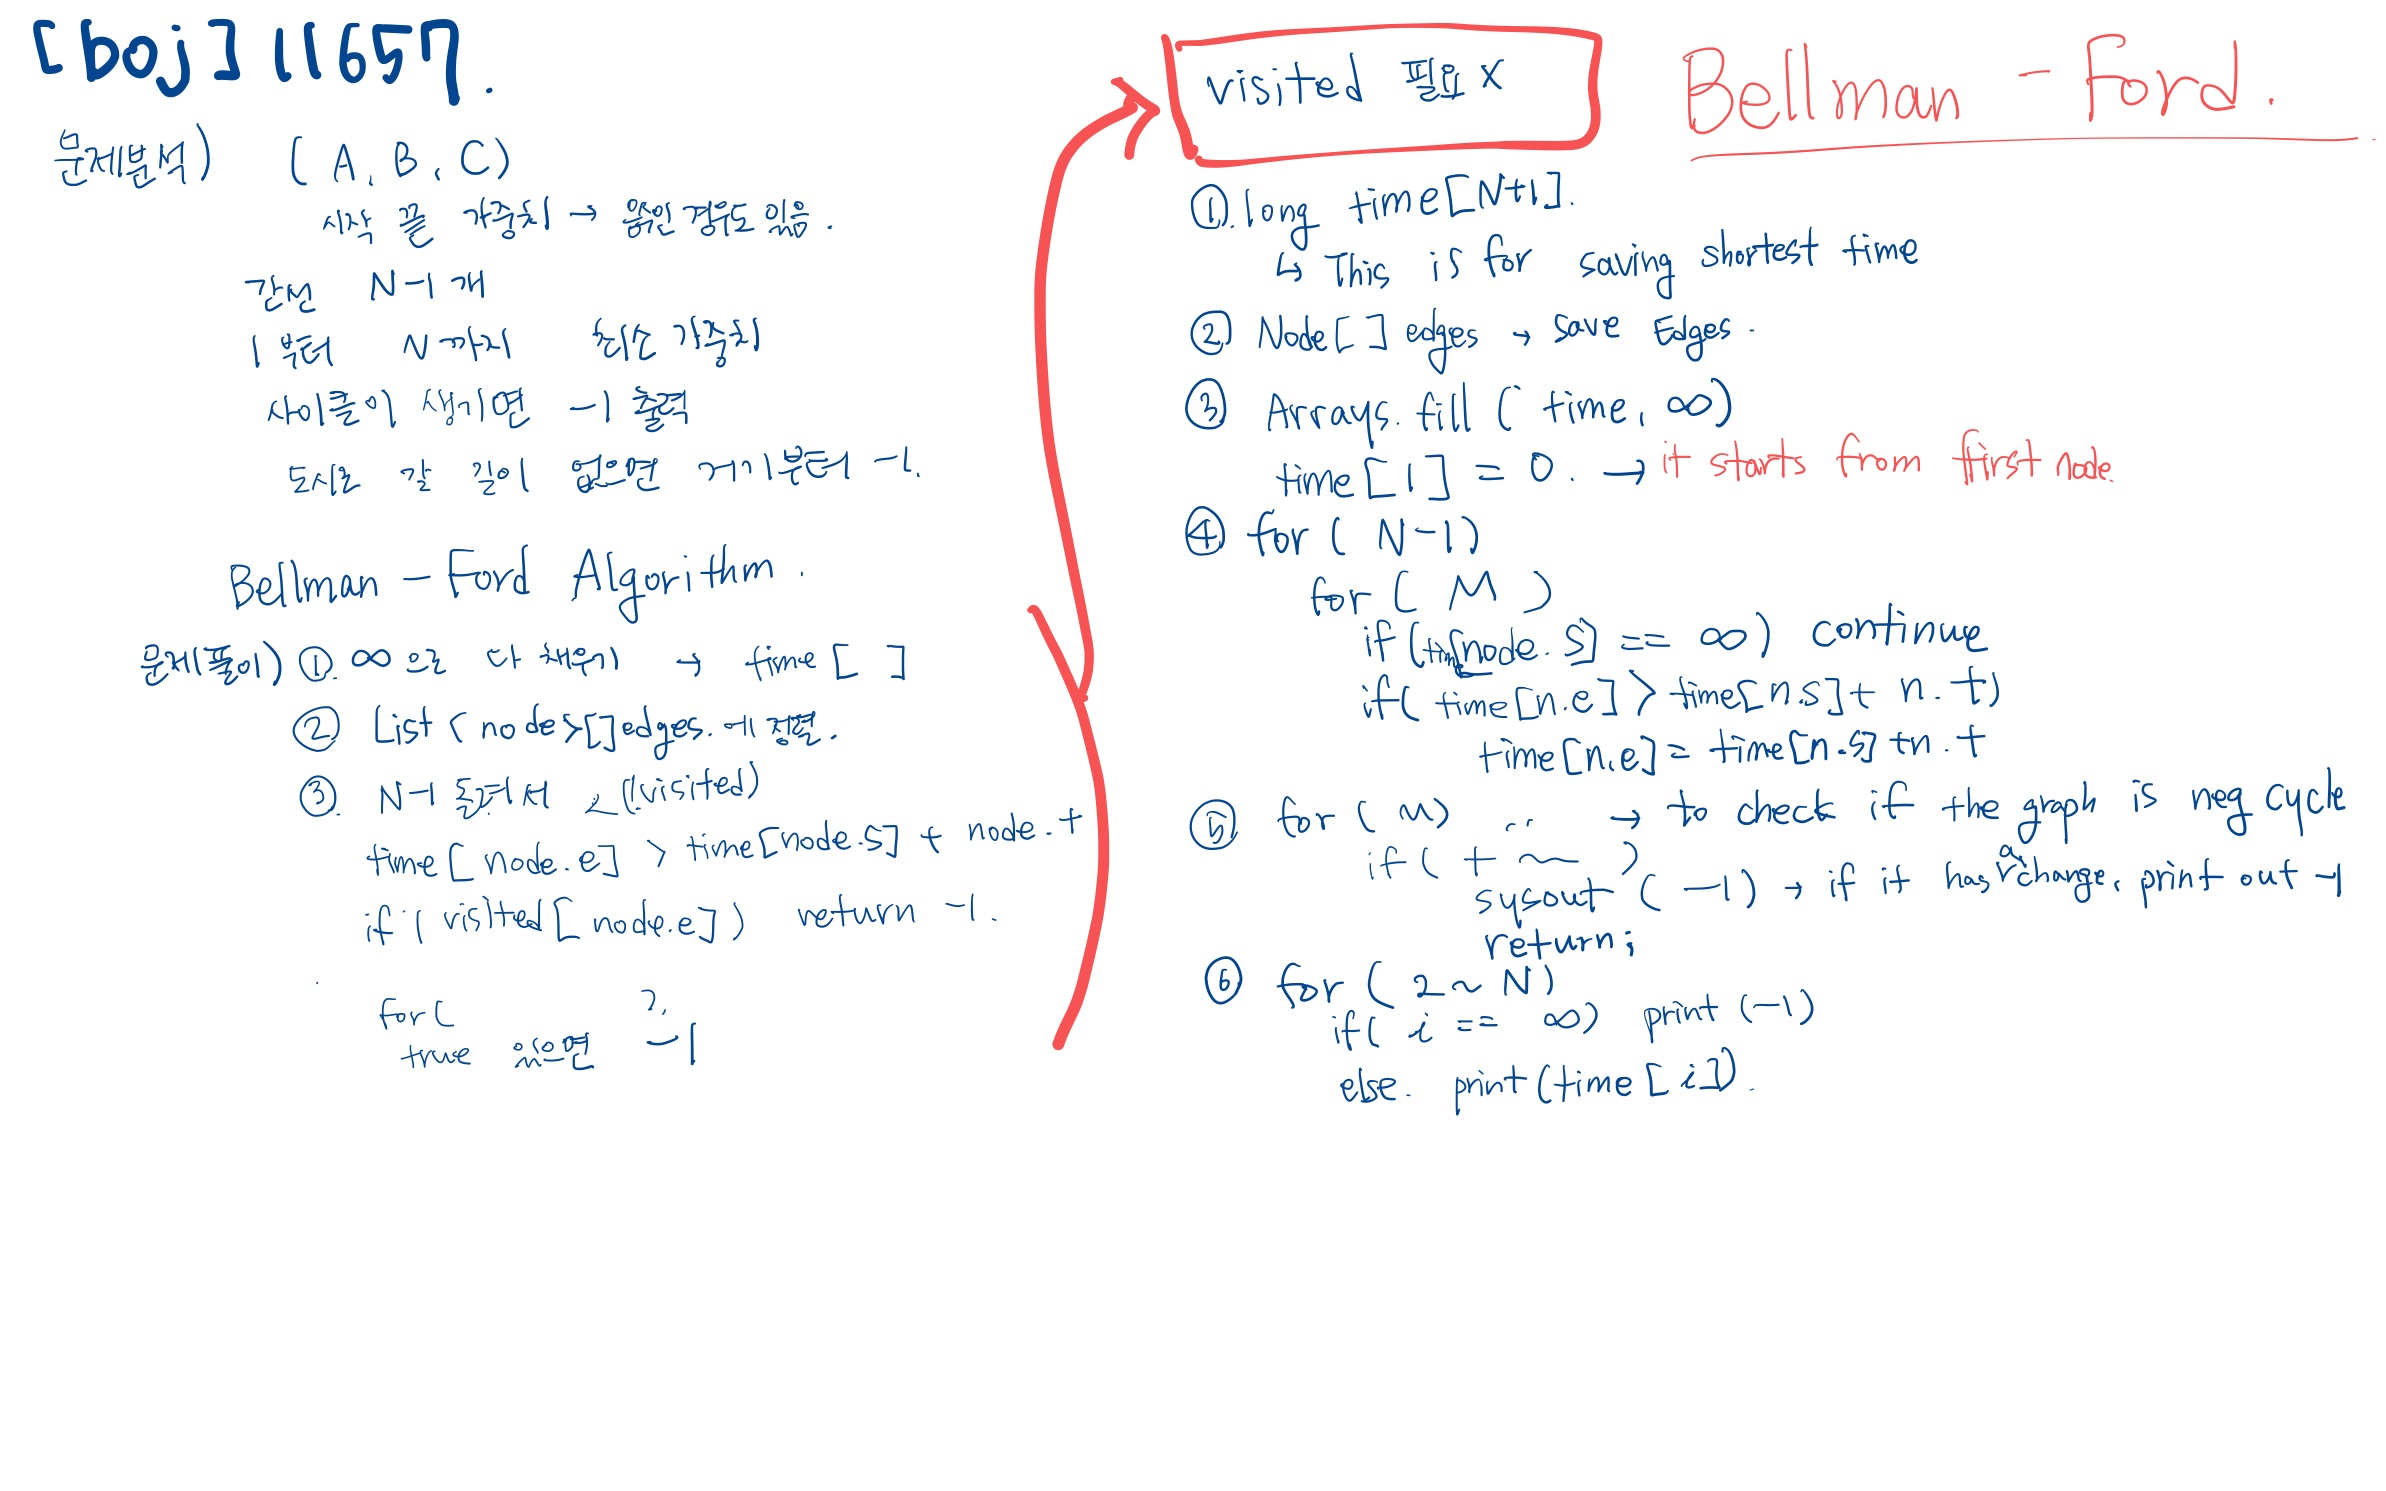 [boj] 11657.
문제분석) (A, B, C)
시작 끝 가중치 → 음수인 경우도 있음.
간선 N-1개
1부터 N까지 최소 가중치
사이클이 생기면 -1 출력
도시로 갈 길이 없으면 거기부터 -1.
Bellman - Ford Algorithm.
문제풀이) ①. ∞으로 다 채우기 → time[ ]
② List<node>[]edges.에 정렬.
③. N-1 돌려서 (!visited)
time[node.e] > time[node.s] + node.t
if(visited[node.e]) return -1.
for(
true 있으면 -1
visited 필요 X
Bellman - Ford.
①. long time[N+1].
↳ This is for saving shortest time
② Node[] edges → save Edges.
③ Arrays.fill(time, ∞)
time[1] = 0. → it starts from first node.
④ for(N-1)
for(M)
if(time[node.s] == ∞) continue
if(time[n.e] > time[n.s] + n.t)
time[n.e] = time[n.s] + n.t
⑤ for(M) → to check if the graph is neg cycle
if(t ~ )
sysout(-1) → if it has a change, print out -1
return;
⑥ for(2~N)
if(i == ∞) print(-1)
else. print(time[i]).